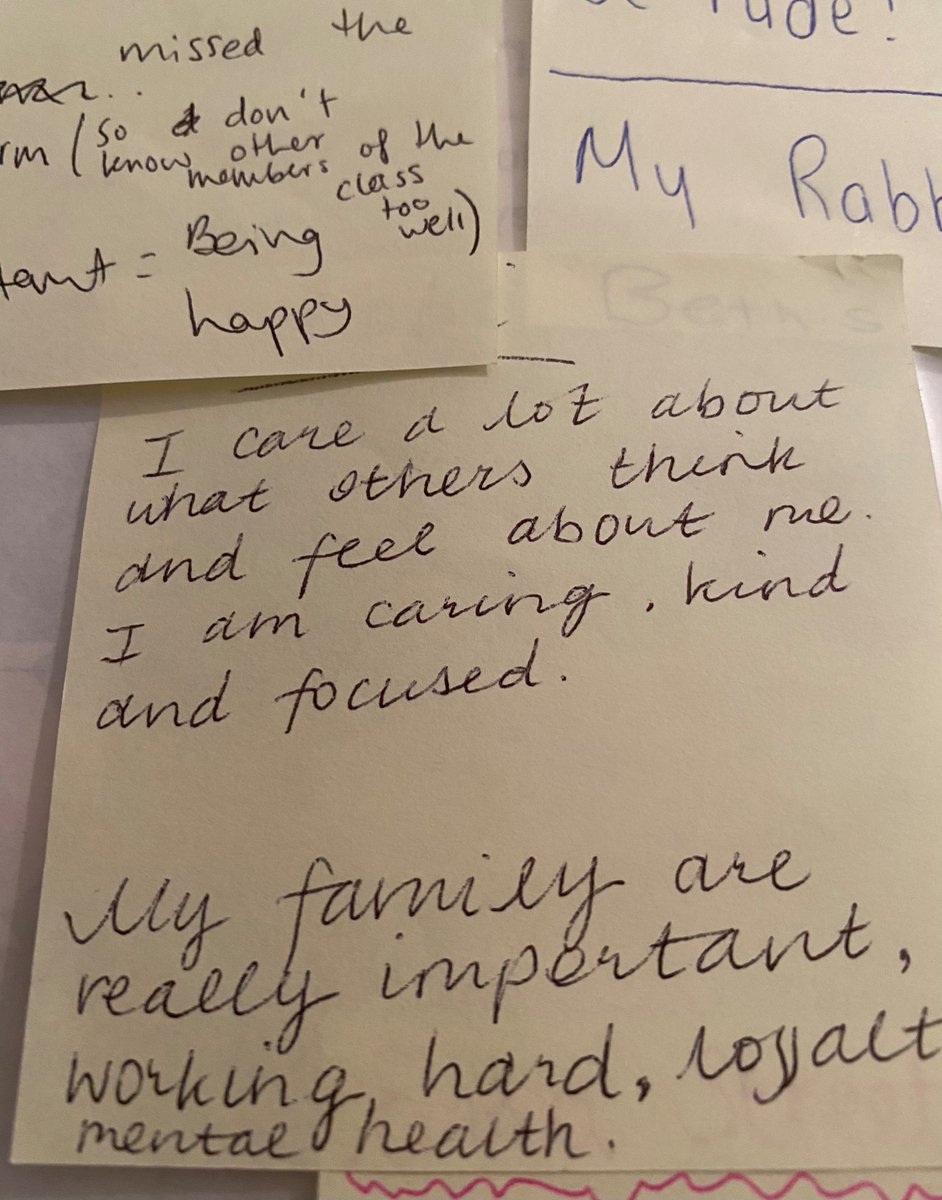 missed the
(so don't
know other
members of the
class
too
well)
= Being
happy
rude!
My Rabb
I care a lot about
what others think
and feel about me.
I am caring, kind
and focused.
My family are
really important,
working hard, loyalt
mental health.